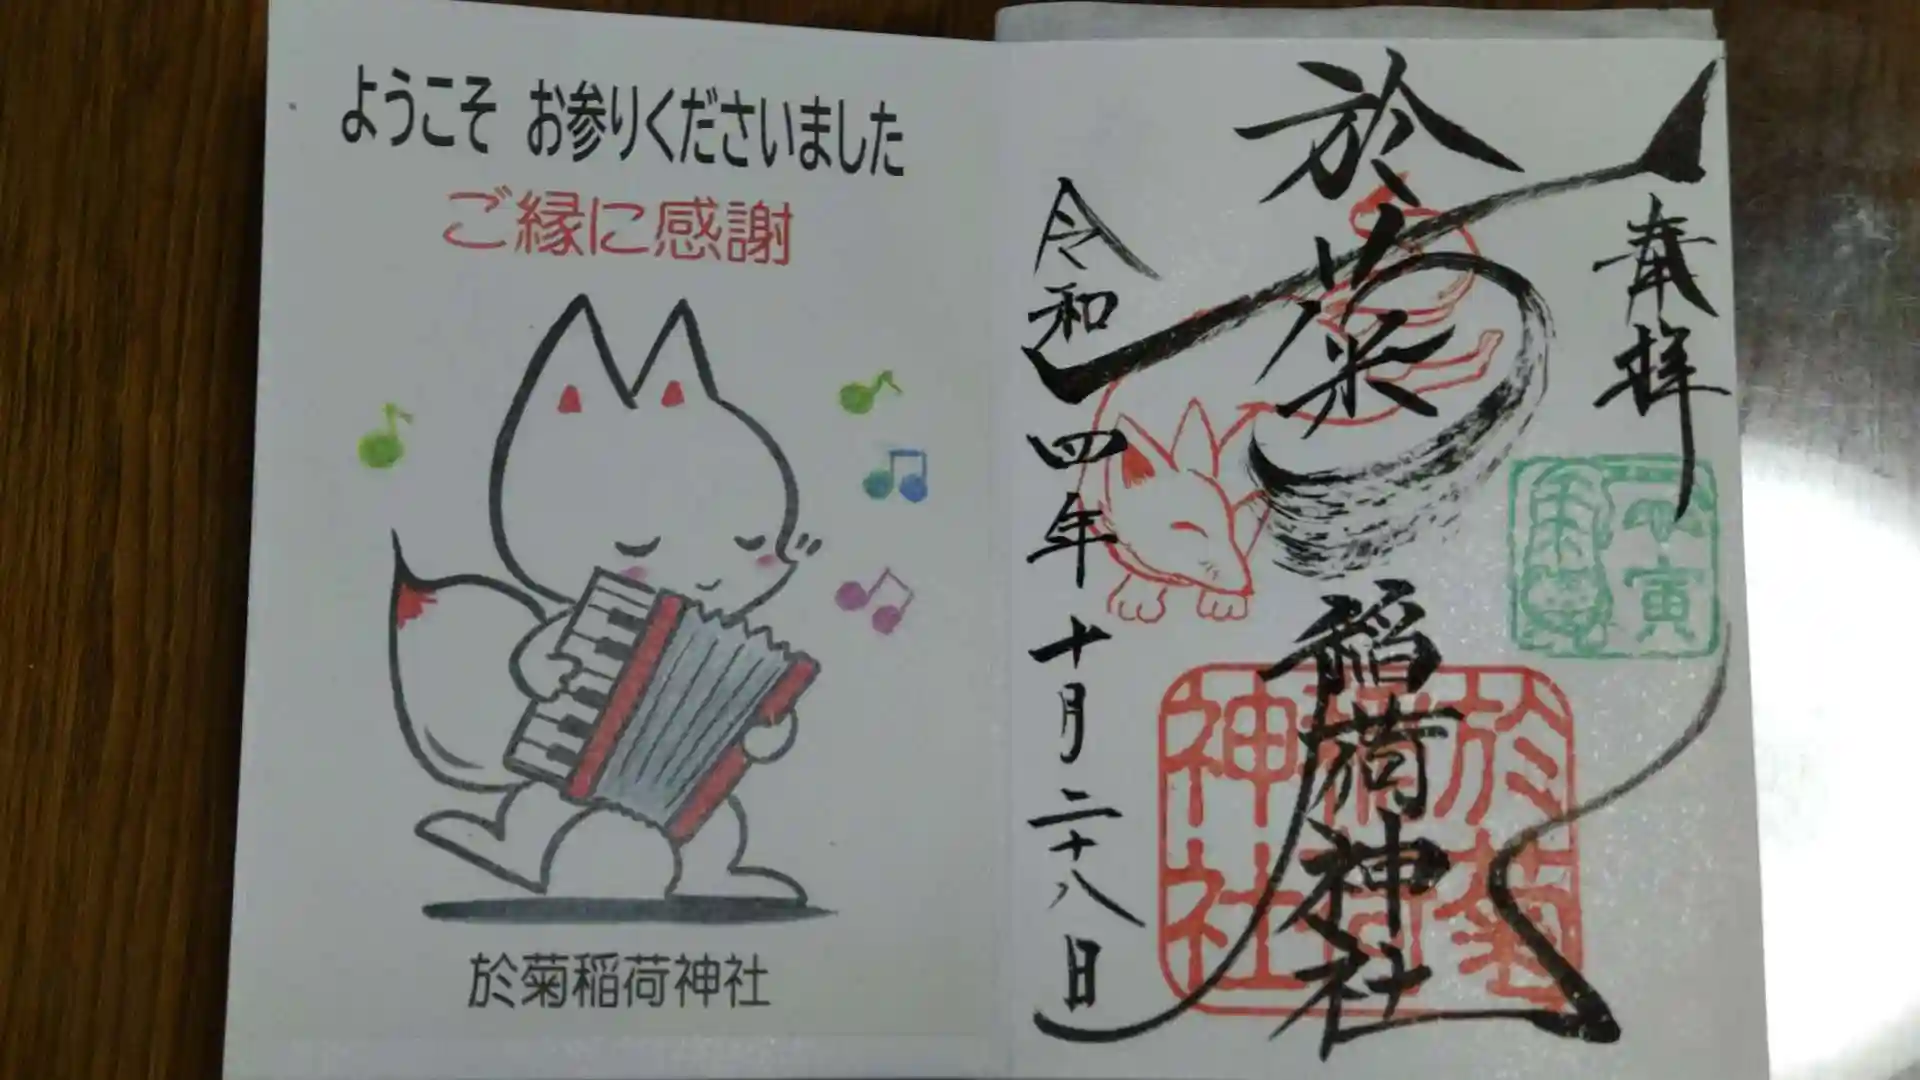 ようこそ お参りくださいました
ご縁に感謝
於菊稲荷神社
奉拝
於菊稲荷神社
令和四年十月二十八日
於菊
稲荷
神社